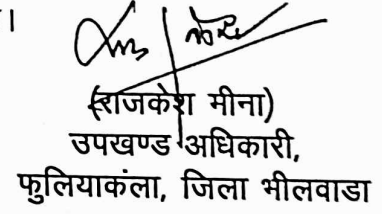 ।
(राजकेश मीना)
उपखण्ड अधिकारी,
फुलियाकंला, जिला भीलवाडा